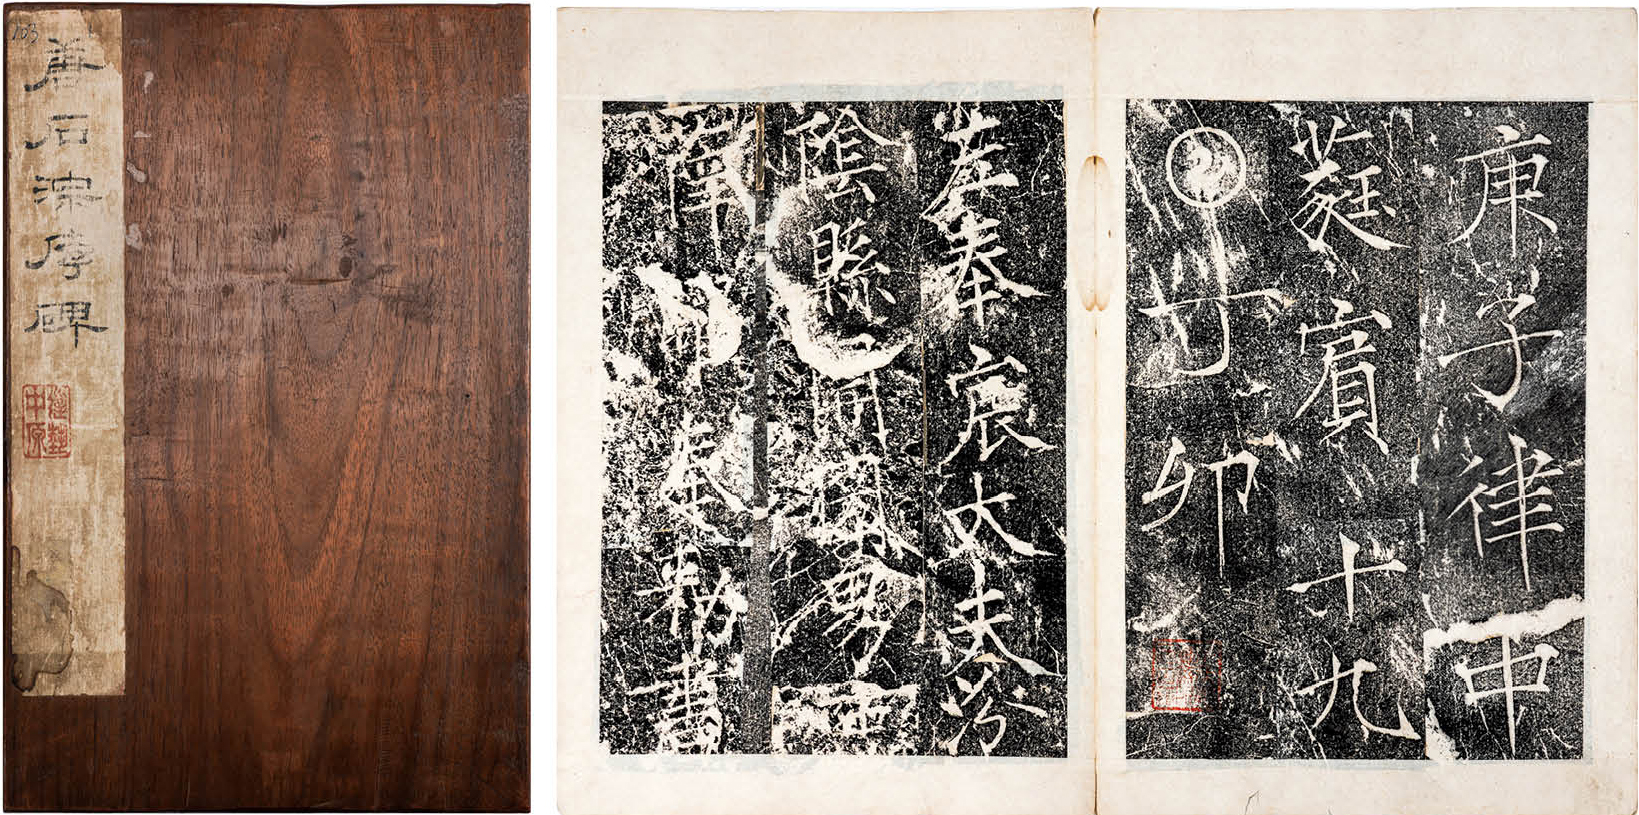 103
唐石淙序碑
中原
庚子律中
蕤賓十九
𡆠丁卯
左奉宸大夫汾
陰縣開國男
薛曜奉勑書